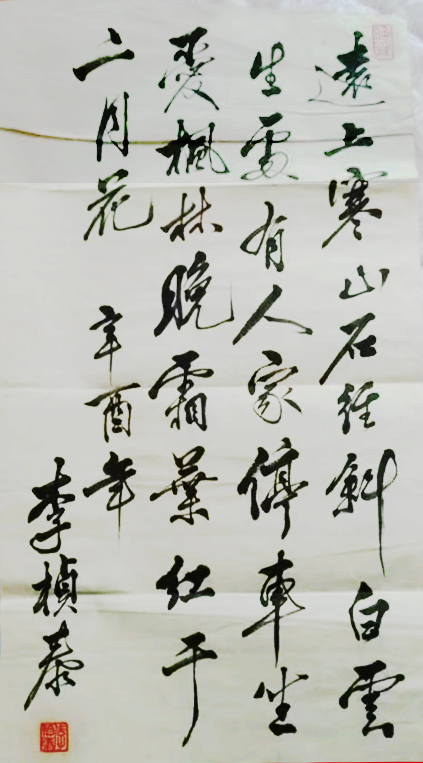 遠上寒山石徑斜白雲
生處有人家停車坐
愛楓林晚霜葉紅于
二月花 辛酉年
李楨泰